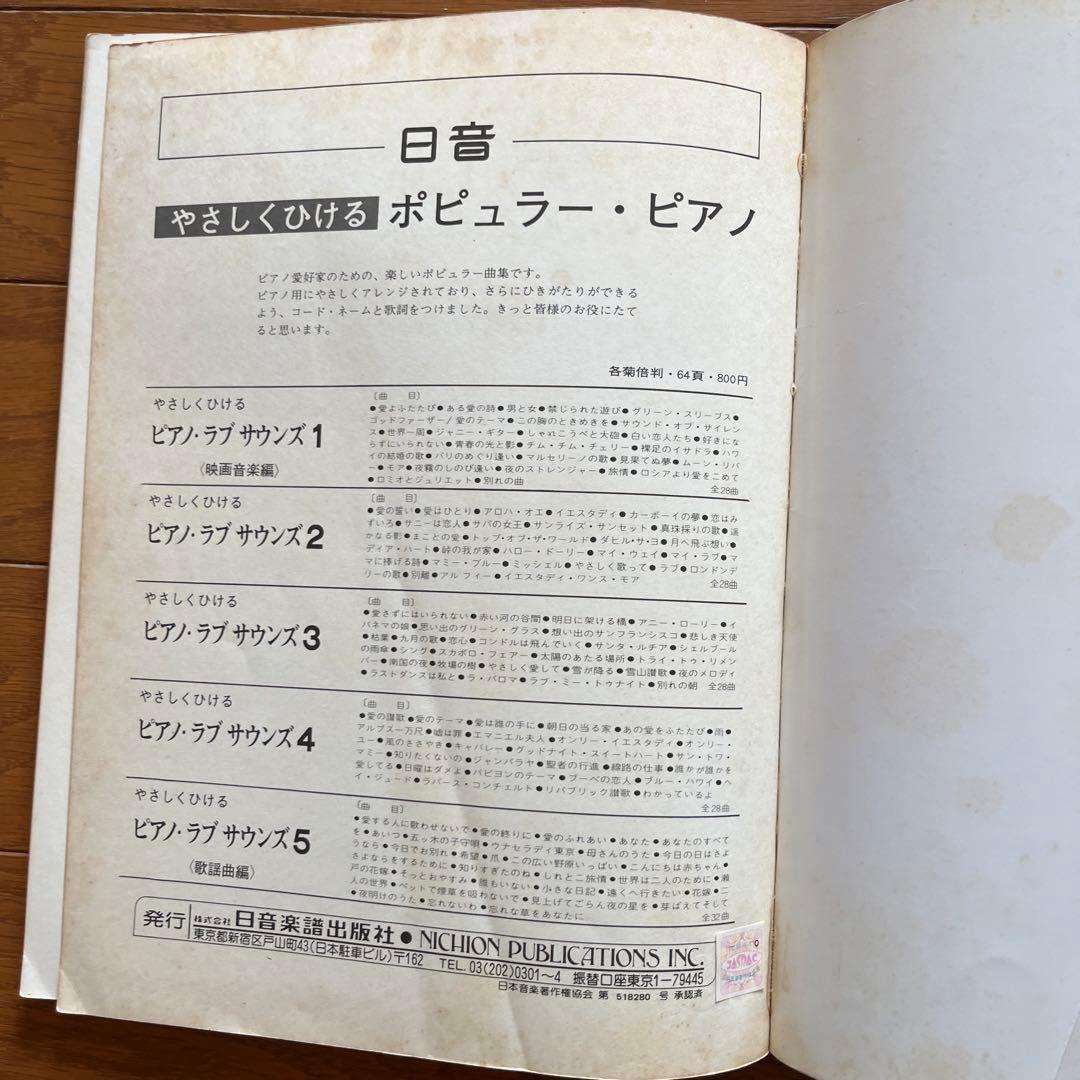 日音
やさしくひける ポピュラー・ピアノ
ピアノ愛好家のための、楽しいポピュラー曲集です。
ピアノ用にやさしくアレンジされており、さらにひきがたりができる
よう、コード・ネームと歌詞をつけました。きっと皆様のお役にたて
ると思います。
各菊倍判・64頁・800円
やさしくひける
ピアノ・ラブ サウンズ1
〈映画音楽編〉
〔曲　目〕
●愛よふたたび●ある愛の詩●男と女●禁じられた遊び●グリーン・スリーブス●
ゴッドファーザー/愛のテーマ●この胸のときめきを●サウンド・オブ・サイレン
ス●世界一周●ジャニー・ギター●しゃれこうべと大砲●白い恋人たち●好きにな
らずにいられない●青春の光と影●チム・チム・チェリー●裸足のイサドラ●ハワ
イの結婚の歌●パリのめぐり逢い●マルセリーノの歌●見果てぬ夢●ムーン・リバ
ー●モア●夜霧のしのび逢い●夜のストレンジャー●旅情●ロシアより愛をこめて
●ロミオとジュリエット●別れの曲
全28曲
やさしくひける
ピアノ・ラブ サウンズ2
〔曲　目〕
●愛の誓い●愛はひとり●アロハ・オエ●イエスタディ●カーボーイの夢●恋はみ
ずいろ●サニーは恋人●サバの女王●サンライズ・サンセット●真珠採りの歌●遥
かなる影●まことの愛●トップ・オブ・ザ・ワールド●ダヒル・サ・ヨ●月へ飛ぶ想い●
ディア・ハート●峠の我が家●ハロー・ドーリー●マイ・ウェイ●マイ・ラブ●マ
マに捧げる詩●マミー・ブルー●ミッシェル●やさしく歌って●ラブ●ロンドンデ
リーの歌●別離●アルフィー●イエスタディ・ワンス・モア
全28曲
やさしくひける
ピアノ・ラブ サウンズ3
〔曲　目〕
●愛さずにはいられない●赤い河の谷間●明日に架ける橋●アニー・ローリー●イ
パネマの娘●思い出のグリーン・グラス●想い出のサンフランシスコ●悲しき天使
●枯葉●九月の歌●恋心●コンドルは飛んでいく●サンタ・ルチア●シェルブール
の雨傘●シング●スカボロ・フェアー●太陽のあたる場所●トライ・トゥ・リメン
バー●南国の夜●牧場の樹●やさしく愛して●雪が降る●雪山讃歌●夜のメロディ
●ラストダンスは私と●ラ・パロマ●ラブ・ミー・トゥナイト●別れの朝 全28曲
やさしくひける
ピアノ・ラブ サウンズ4
〔曲　目〕
●愛の讃歌●愛のテーマ●愛は誰の手に●朝日の当る家●あの愛をふたたび●雨●
アルプス一万尺●嘘は罪●エマニエル夫人●オンリー・イエスタディ●オンリー・
ユー●風のささやき●キャバレー●グッドナイト・スイートハート●サン・トワ・
マミー●知りたくないの●ジャンバラヤ●聖者の行進●線路の仕事●誰かが誰かを
愛してる●日曜はダメよ●パピヨンのテーマ●ブーベの恋人●ブルー・ハワイ●ヘ
イ・ジュード●ラバース・コンチェルト●リパブリック讃歌●わかっているよ
全28曲
やさしくひける
ピアノ・ラブ サウンズ5
〈歌謡曲編〉
〔曲　目〕
●愛する人に歌わせないで●愛の終りに●愛のふれあい●あなた●あなたのすべて
を●あいつ●五ッ木の子守唄●ウナセラディ東京●母さんのうた●今日の日はさよ
うなら●今日でお別れ●希望●爪●この広い野原いっぱい●こんにちは赤ちゃん●
さよならをするために●知りすぎたのね●しれとこ旅情●世界は二人のために●瀬
戸の花嫁●そっとおやすみ●誰もいない●小さな日記●遠くへ行きたい●花嫁●二
人の世界●ベットで煙草を吸わないで●見上げてごらん夜の星を●芽ばえてそして
●夜明けのうた●忘れないわ●忘れな草をあなたに
全32曲
発行 株式会社 日音楽譜出版社●NICHION PUBLICATIONS INC.
東京都新宿区戸山町43(日本駐車ビル)〒162 TEL.03(202)0301〜4 振替口座東京1-79445
日本音楽著作権協会 第 518280 号 承認済
JASRAC